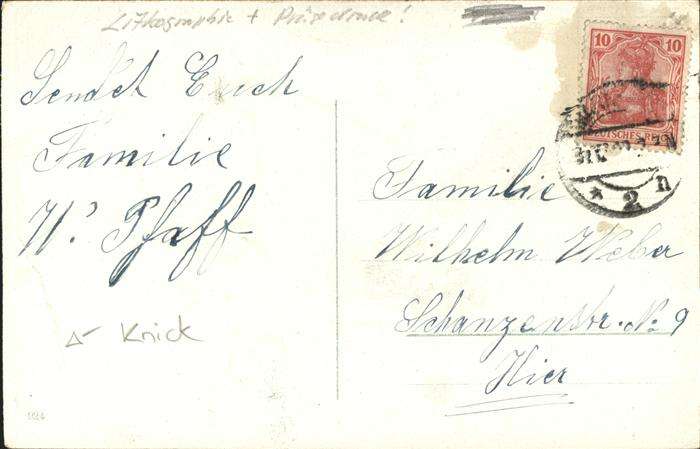 Lithographie + Prägedruck!
Sendet Euch
Familie
H. Pfaff
Knick
10 10
DEUTSCHES REICH
* 2 n
Familie
Wilhelm Weber
Schanzenstr. No 9
Hier